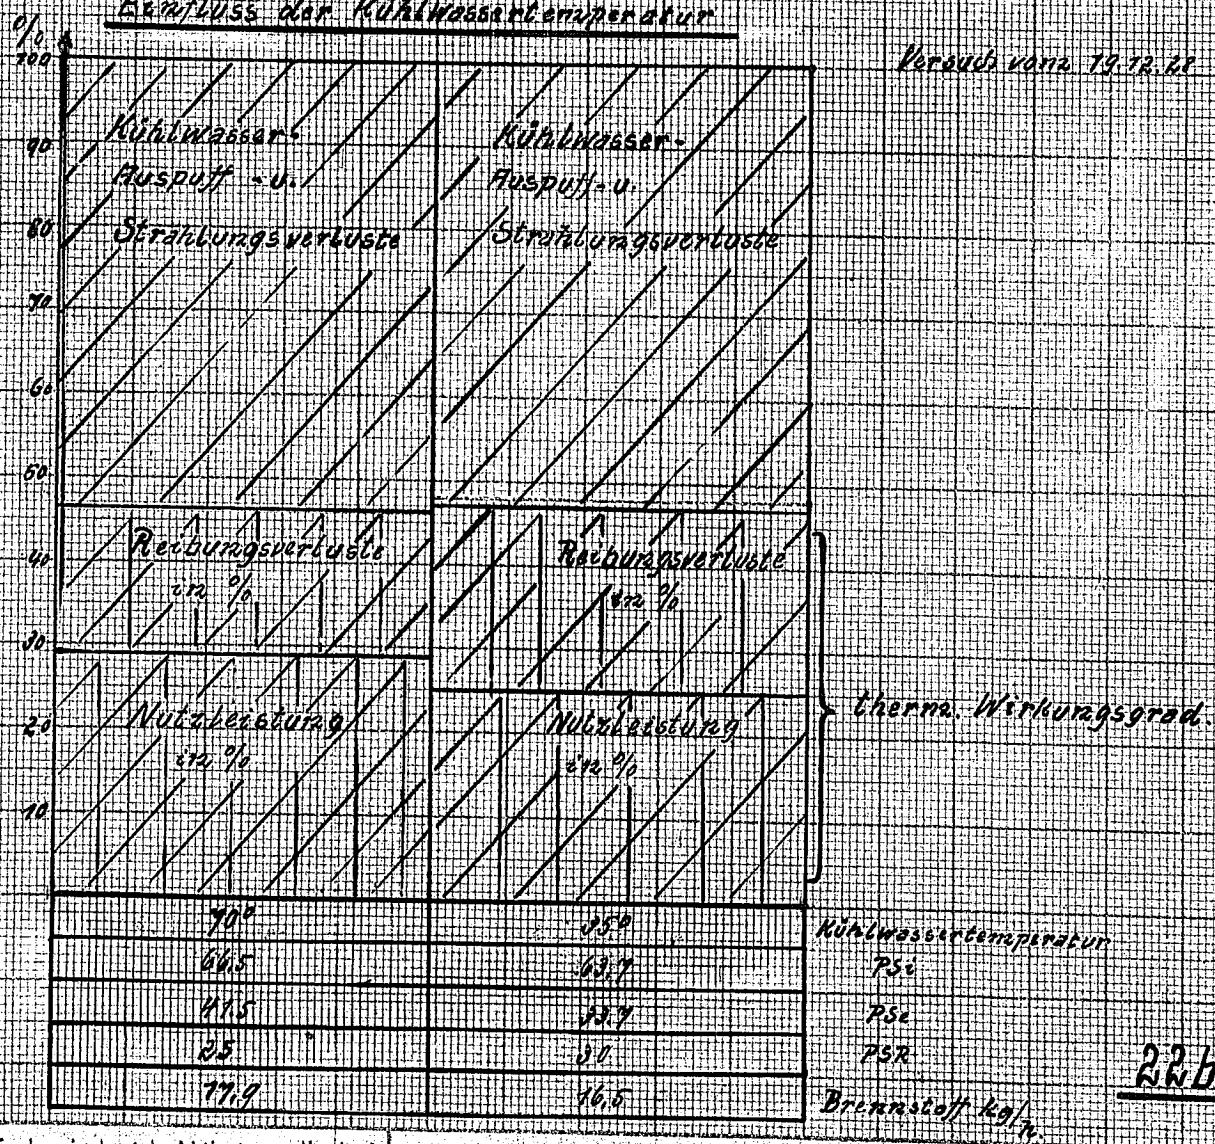 Einfluss der Kühlwassertemperatur
Versuch vom 19.12.28
%
100
90
80
70
60
50
40
30
20
10
Kühlwasser-
Auspuff-u.
Strahlungsverluste
Kühlwasser-
Auspuff-u.
Strahlungsverluste
Reibungsverluste
in %
Reibungsverluste
in %
Nutzleistung
in %
Nutzleistung
in %
therm. Wirkungsgrad.
70° 35° Kühlwassertemperatur
66,5 63,7 PSi
41,5 33,7 PSe
25 30 PSR
17,9 16,5 Brennstoff kg/h.
22b